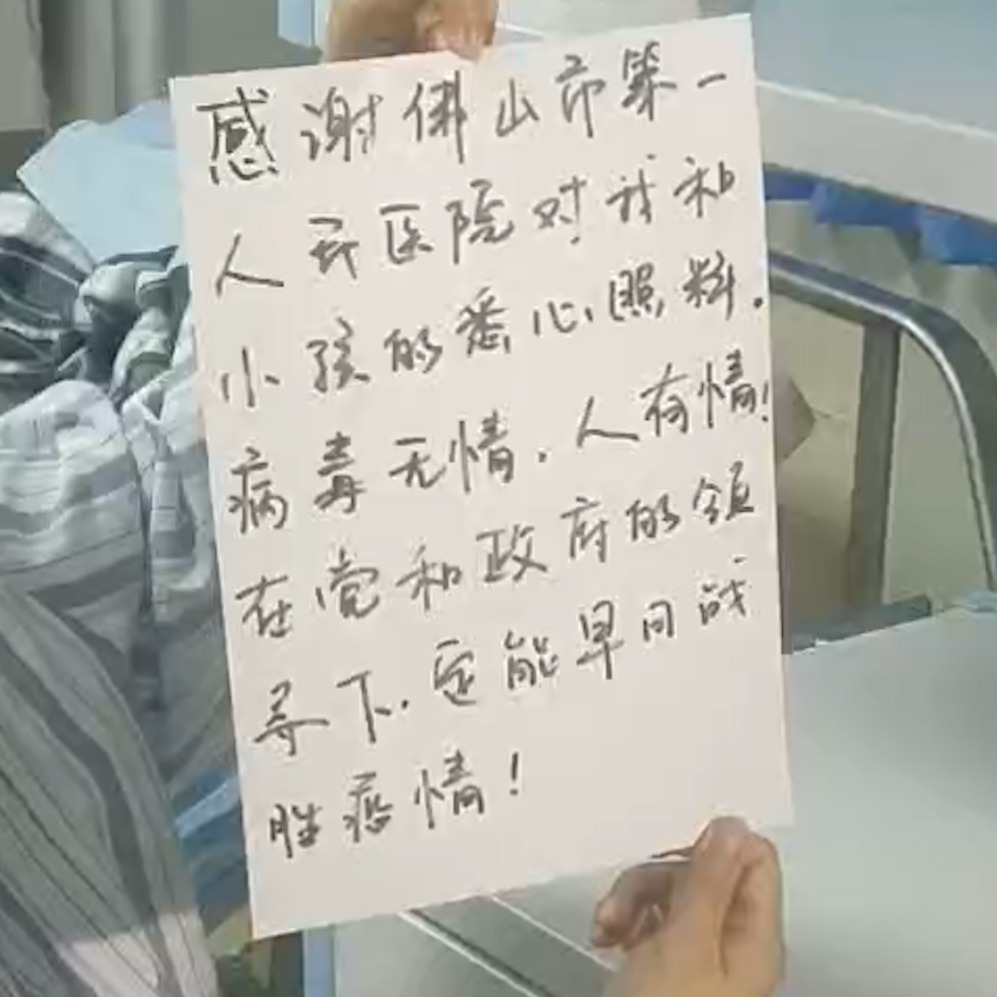 感谢佛山市第一
人民医院对我和
小孩的悉心照料.
病毒无情.人有情!
在党和政府的领
导下.定能早日战
胜疫情!